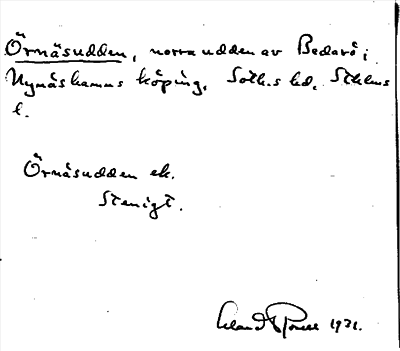 Örnäsudden, norra udden av Bedarö i
Nynäshamns köping, Soth.s hd, Sthlms
l.
Örnäsudden ek.
Stenigt.
1921.